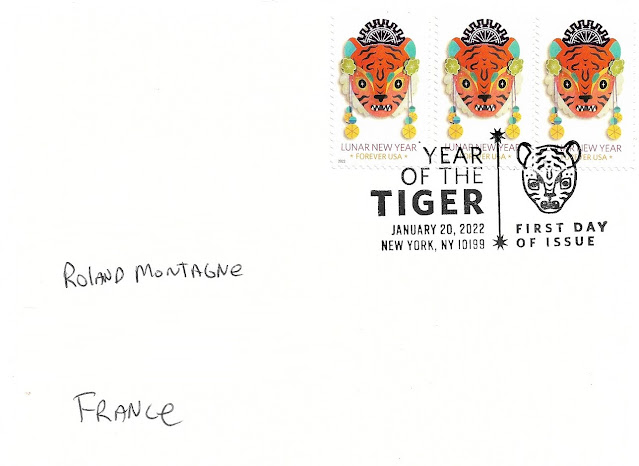 LUNAR NEW YEAR
FOREVER USA
2022
LUNAR NEW YEAR
FOREVER USA
LUNAR NEW YEAR
FOREVER USA
YEAR
OF THE
TIGER
JANUARY 20, 2022
NEW YORK, NY 10199
FIRST DAY
OF ISSUE
ROLAND MONTAGNE
FRANCE